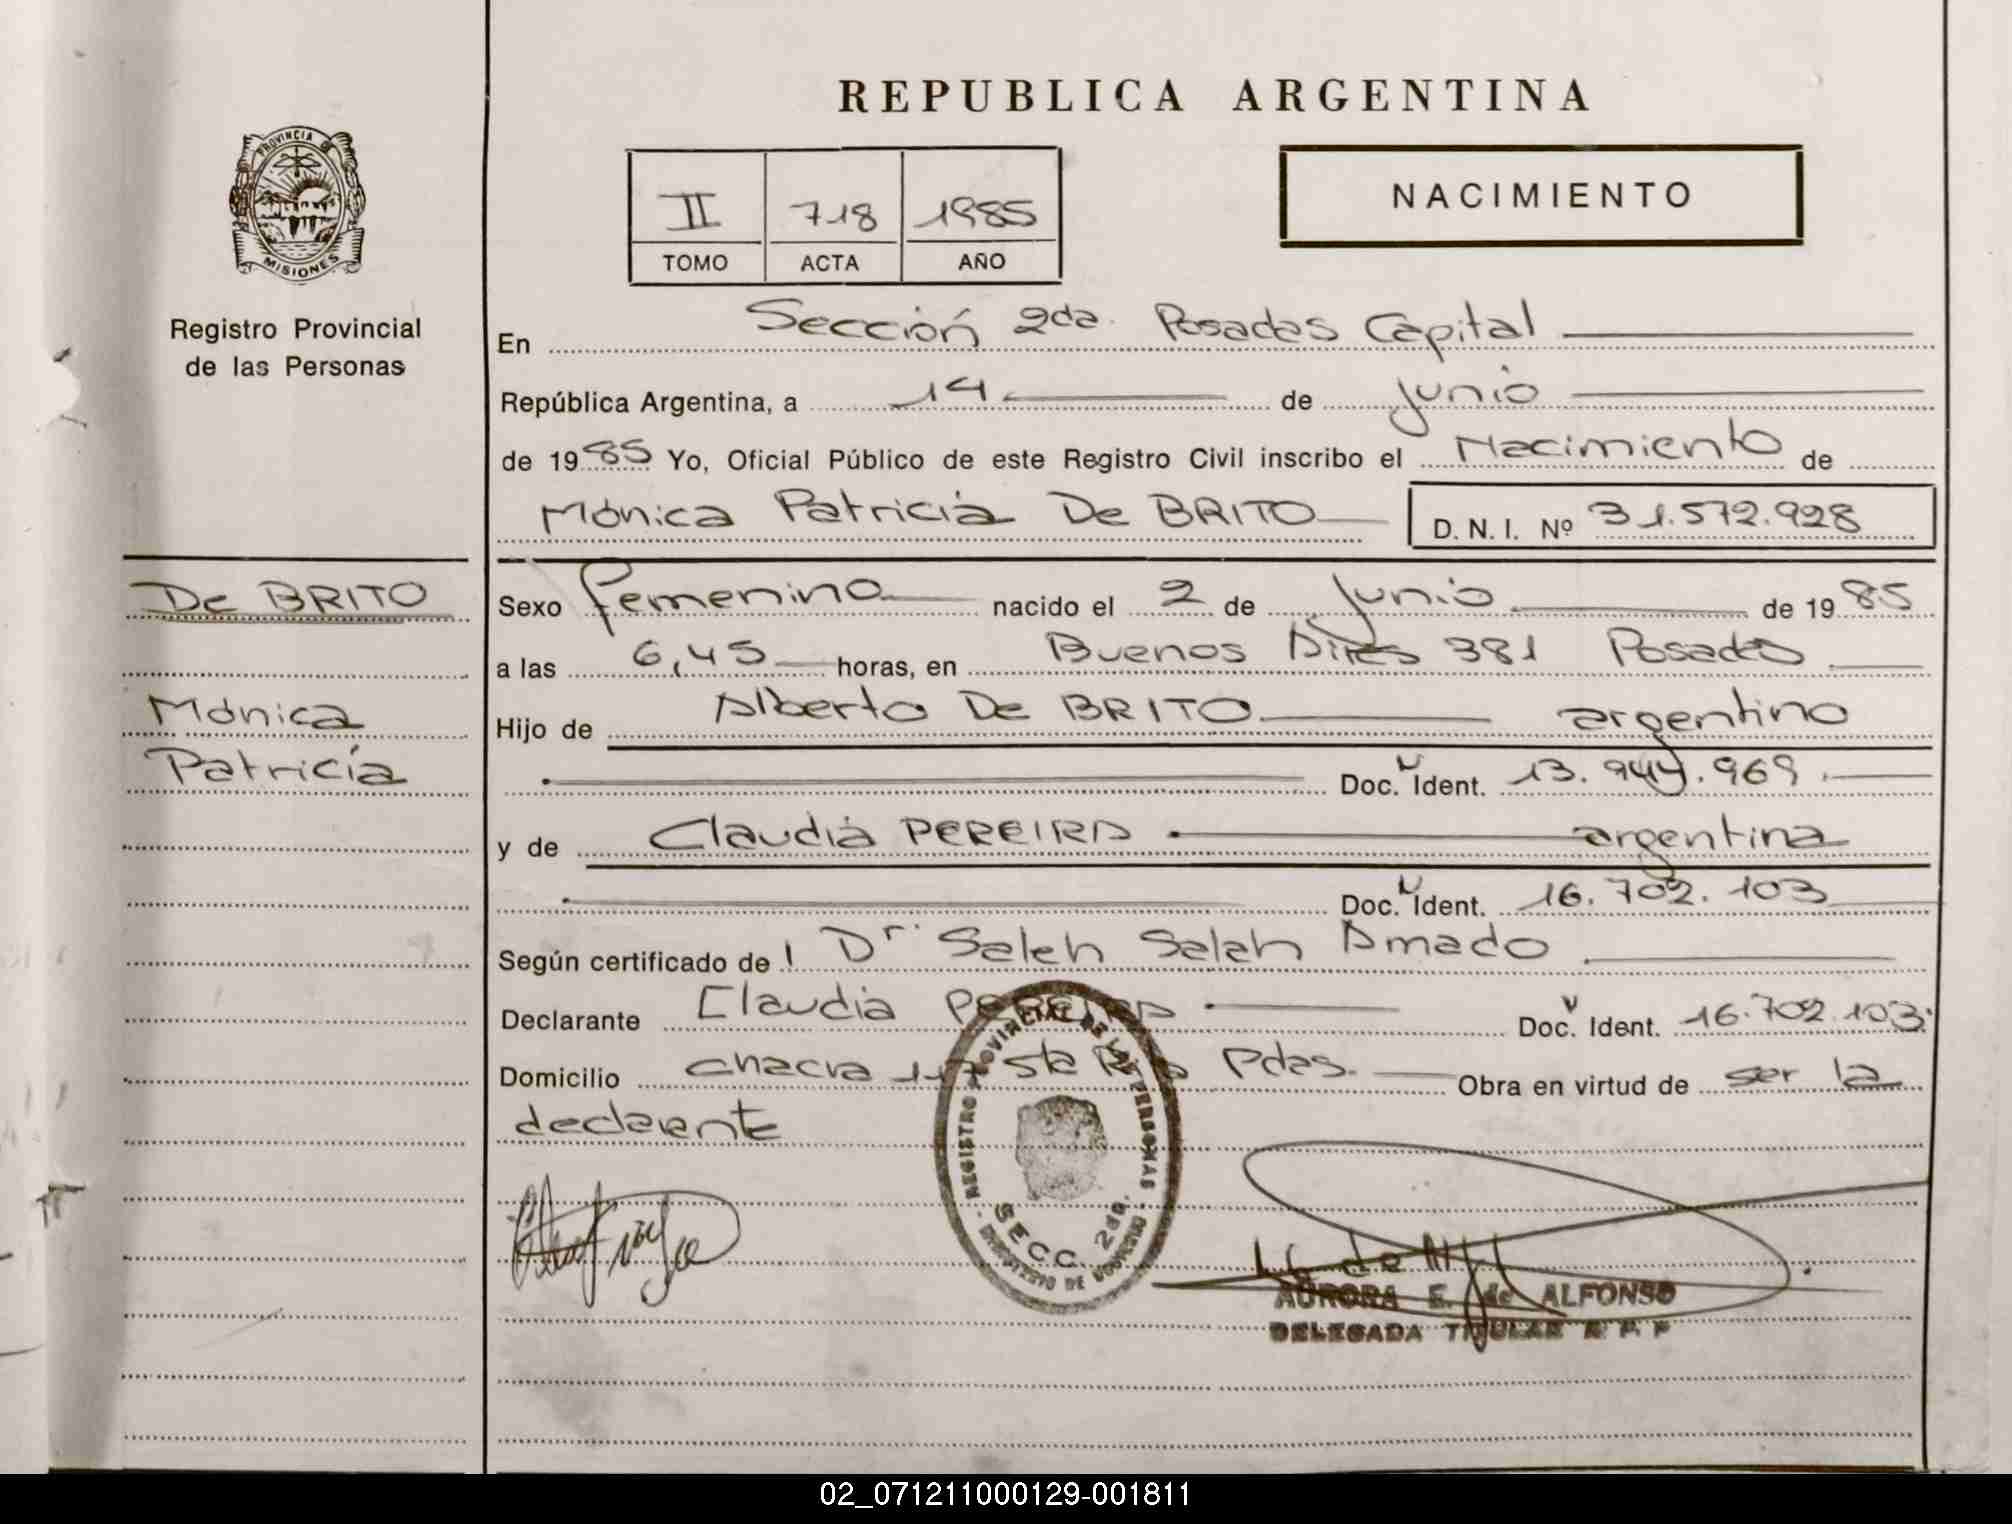 REPUBLICA ARGENTINA
PROVINCIA DE MISIONES
Registro Provincial
de las Personas
II 718 1985
TOMO ACTA AÑO
NACIMIENTO
En Sección 2da. Posadas Capital
República Argentina, a 14 de junio
de 1985 Yo, Oficial Público de este Registro Civil inscribo el Nacimiento de
Mónica Patricia De BRITO D. N. I. Nº 31.572.928
De BRITO
Mónica
Patricia
Sexo femenino nacido el 2 de junio de 1985
a las 6,45 horas, en Buenos Aires 381 Posadas
Hijo de Alberto De BRITO argentino
Doc. Ident. 13.944.969
y de Claudia PEREIRA argentina
Doc. Ident. 16.702.103
Según certificado de l Dr. Saleh Saleh Amado
Declarante Claudia PEREIRA Doc. Ident. 16.702.103
Domicilio chacra 117 Sta Rita Pdas. Obra en virtud de ser la
declarente
REGISTRO PROVINCIAL DE LAS PERSONAS
SECC. 2da.
AURORA E. de ALFONSO
DELEGADA TITULAR R P P
02_071211000129-001811